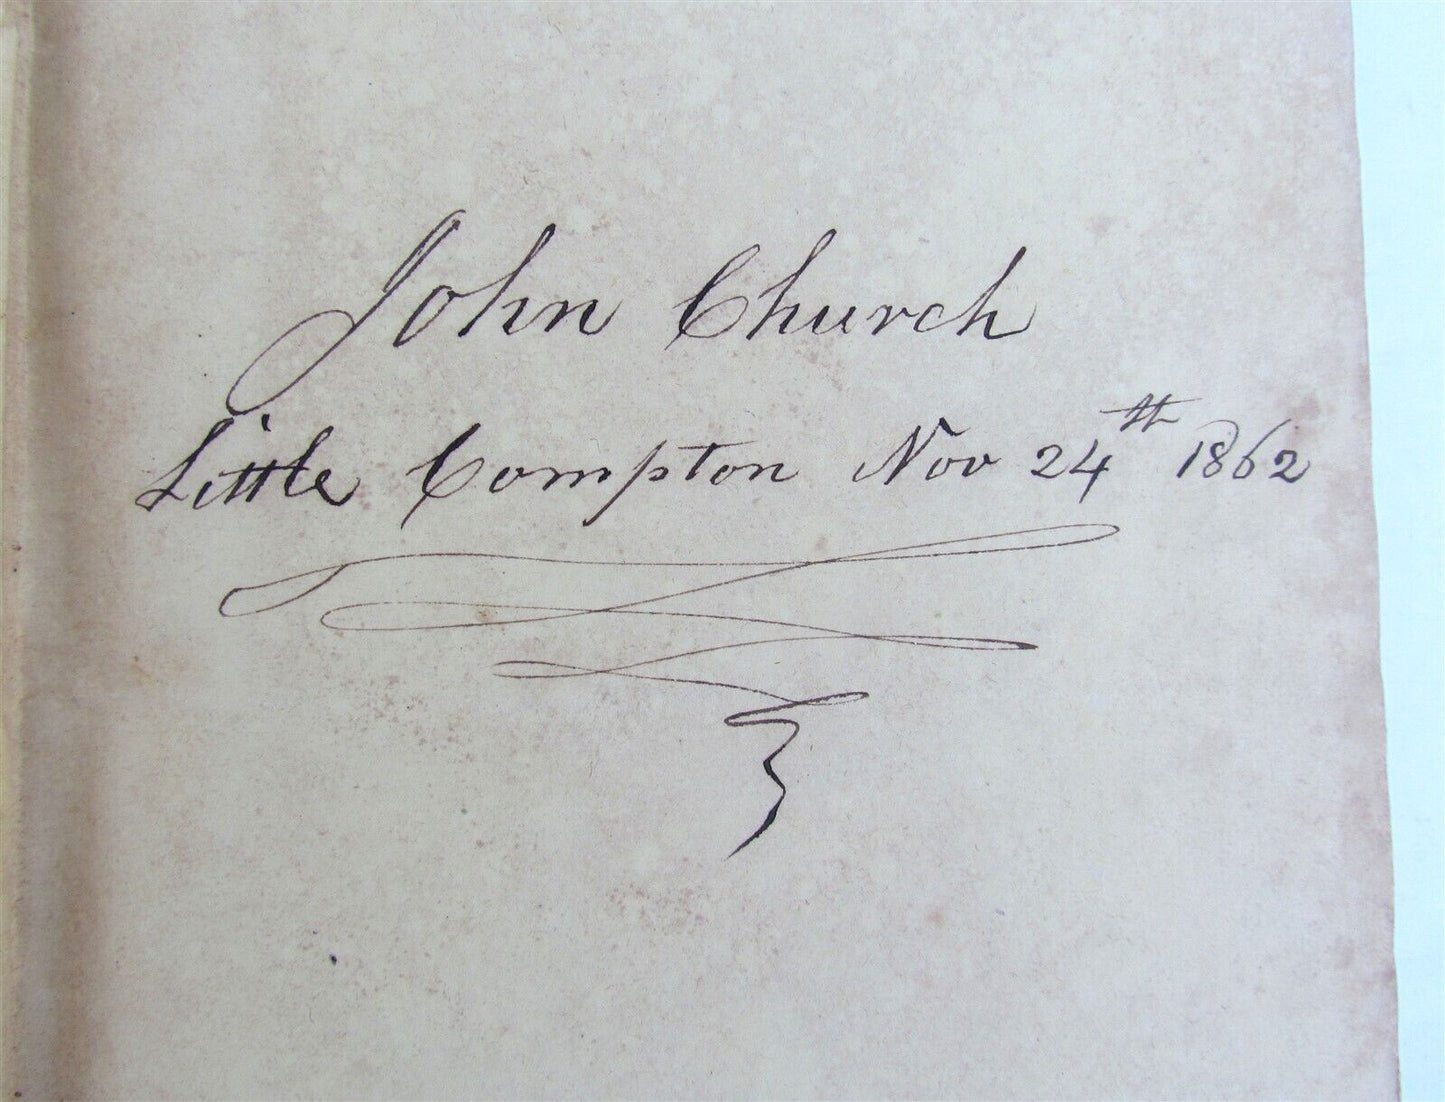 John Church
Little Compton Nov 24th 1862